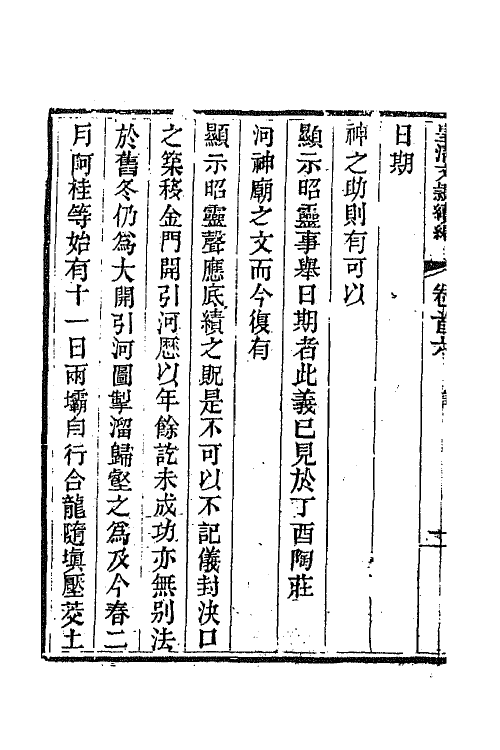 皇清文穎續編
卷首六
日期
神之助則有可以
顯示昭靈事舉日期者此義已見於丁酉陶莊
河神廟之文而今復有
顯示昭靈聲應底績之貺是不可以不記儀封決口
之築移金門開引河歷以年餘訖未成功亦無別法
於舊冬仍為大開引河圖掣溜歸壑之為及今春二
月阿桂等始有十一日兩壩自行合龍隨塡壓茭土